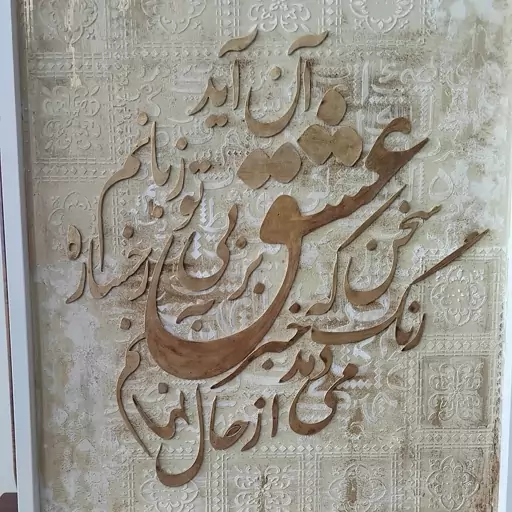 سخن عشق تو بی آن که بر آید به زبانم
رنگ رخساره خبر می دهد از حال نهانم